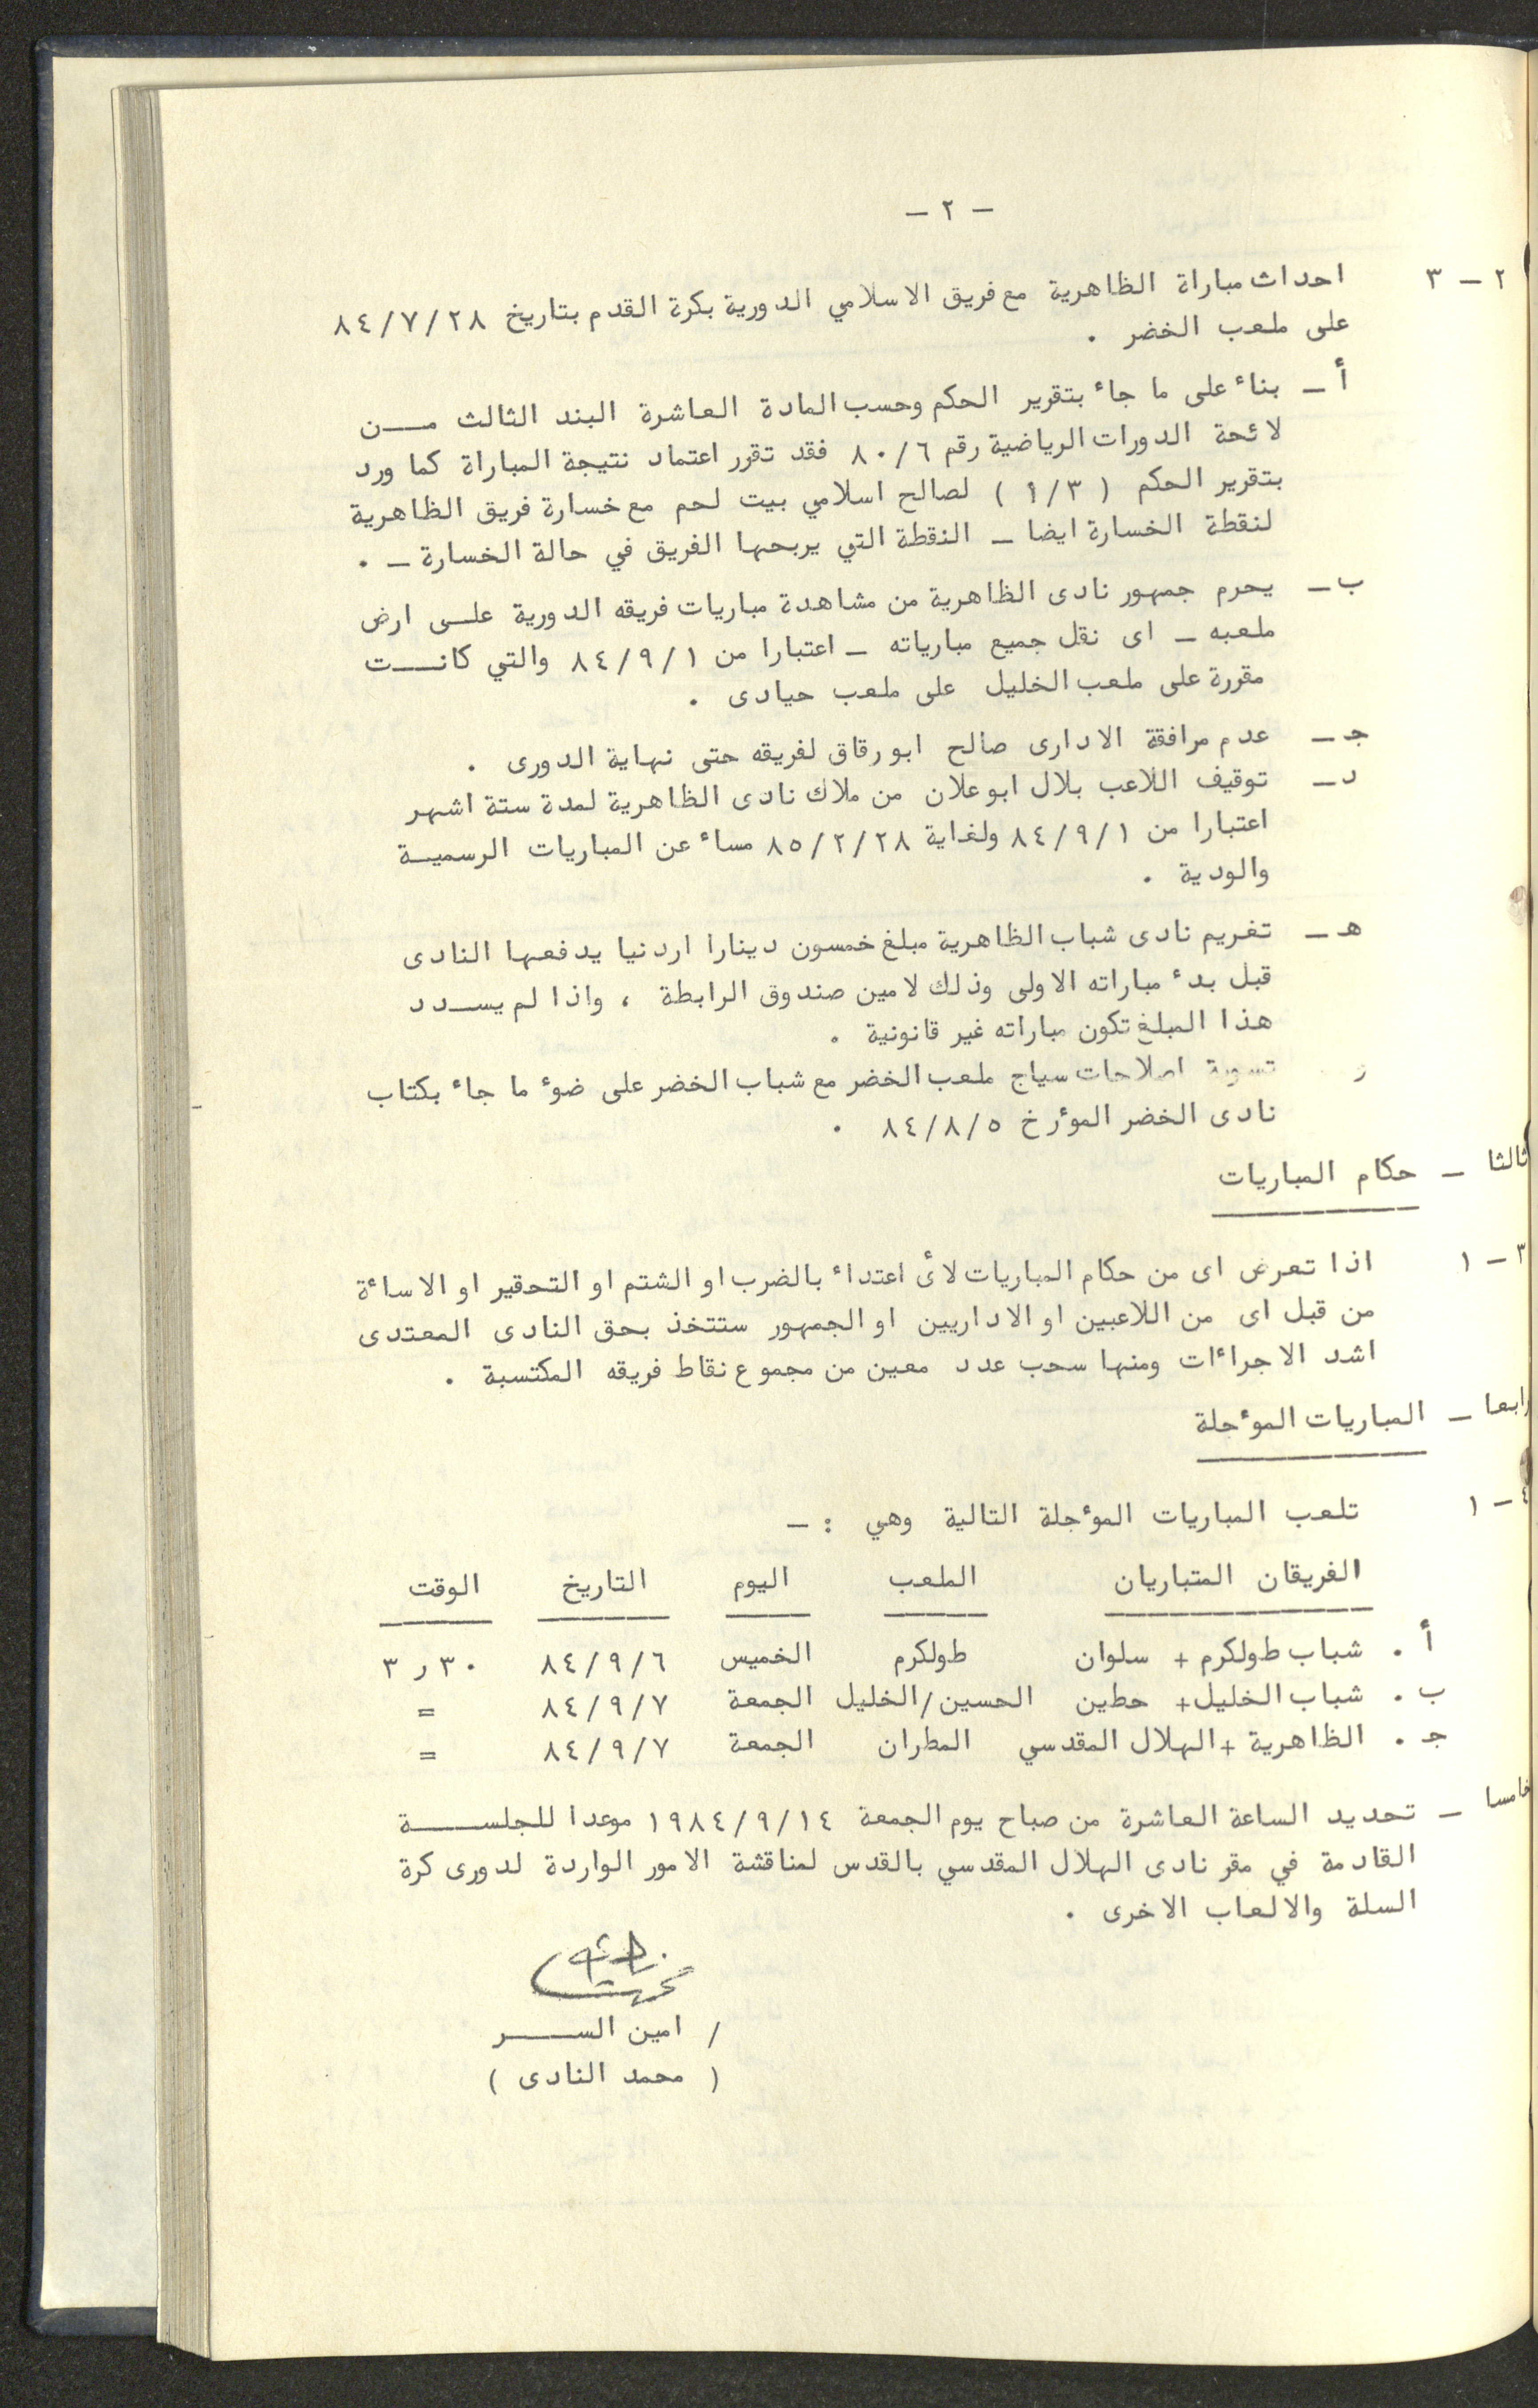 - ٢ -
٢ - ٣ احداث مباراة الظاهرية مع فريق الاسلامي الدورية بكرة القدم بتاريخ ٨٤/٧/٢٨
على ملعب الخضر .
أ - بناء على ما جاء بتقرير الحكم وحسب المادة العاشرة البند الثالث مــن
لائحة الدورات الرياضية رقم ٨٠/٦ فقد تقرر اعتماد نتيجة المباراة كما ورد
بتقرير الحكم ( ١/٣ ) لصالح اسلامي بيت لحم مع خسارة فريق الظاهرية
لنقطة الخسارة ايضا - النقطة التي يربحها الفريق في حالة الخسارة - .
ب - يحرم جمهور نادى الظاهرية من مشاهدة مباريات فريقه الدورية علــى ارض
ملعبه - اى نقل جميع مبارياته - اعتبارا من ٨٤/٩/١ والتي كانــت
مقررة على ملعب الخليل على ملعب حيادى .
جـ - عدم مرافقة الادارى صالح ابو رقاق لفريقه حتى نهاية الدورى .
د - توقيف اللاعب بلال ابو علان من ملاك نادى الظاهرية لمدة ستة اشهر
اعتبارا من ٨٤/٩/١ ولغاية ٨٥/٢/٢٨ مساء عن المباريات الرسميــة
والودية .
هـ - تغريم نادى شباب الظاهرية مبلغ خمسون دينارا اردنيا يدفعها النادى
قبل بدء مباراته الاولى وذلك لامين صندوق الرابطة ، واذا لم يســدد
هذا المبلغ تكون مباراته غير قانونية .
و تسوية اصلاحات سياج ملعب الخضر مع شباب الخضر على ضوء ما جاء بكتاب
نادى الخضر المؤرخ ٨٤/٨/٥ .
ثالثا - حكام المباريات
٣ - ١ اذا تعرض اى من حكام المباريات لأى اعتداء بالضرب او الشتم او التحقير او الاساءة
من قبل اى من اللاعبين او الاداريين او الجمهور ستتخذ بحق النادى المعتدى
اشد الاجراءات ومنها سحب عدد معين من مجموع نقاط فريقه المكتسبة .
رابعا - المباريات المؤجلة
٤ - ١ تلعب المباريات المؤجلة التالية وهي : -
الفريقان المتباريان الملعب اليوم التاريخ الوقت
أ . شباب طولكرم + سلوان طولكرم الخميس ٨٤/٩/٦ ٣٠ر٣
ب . شباب الخليل + حطين الحسين/الخليل الجمعة ٨٤/٩/٧ =
جـ . الظاهرية + الهلال المقدسي المطران الجمعة ٨٤/٩/٧ =
خامسا - تحديد الساعة العاشرة من صباح يوم الجمعة ١٩٨٤/٩/١٤ موعدا للجلســـة
القادمة في مقر نادى الهلال المقدسي بالقدس لمناقشة الامور الواردة لدورى كرة
السلة والالعاب الاخرى .
/ امين الســـر
( محمد النادى )